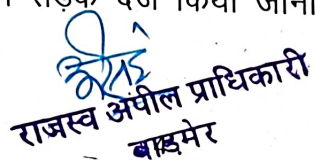 सड़क दर्ज किया जाना
राजस्व अपील प्राधिकारी
बाड़मेर